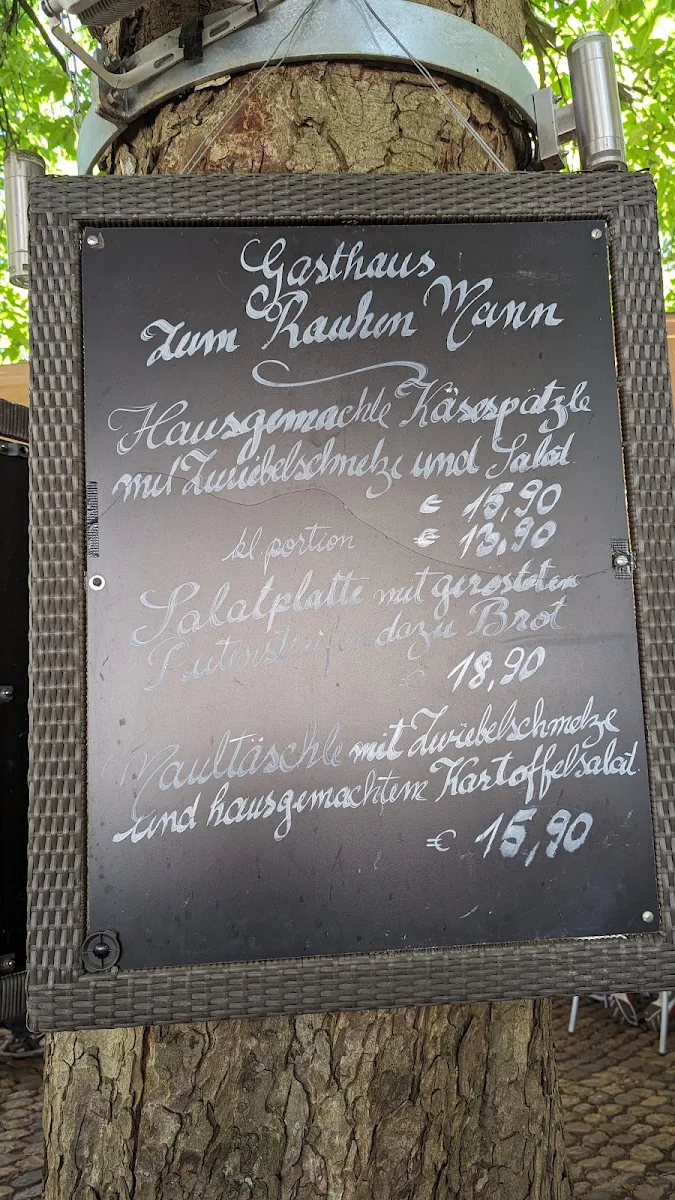 Gasthaus
Zum Rauhen Mann
Hausgemachte Käsespätzle
mit Zwiebelschmelze und Salat
€ 15,90
kl portion € 13,90
Salatplatte mit gerösteten
Putenstreifen dazu Brot
€ 18,90
Maultäschle mit Zwiebelschmelze
und hausgemachtem Kartoffelsalat
€ 15,90